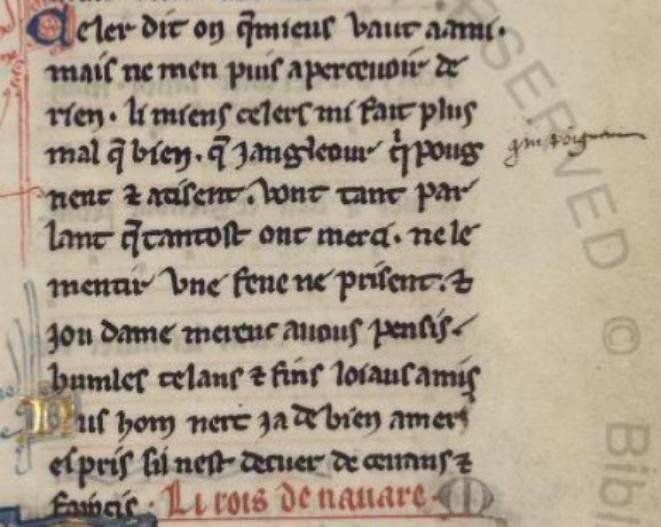 Celer dit on q̃ mieus vaut aami.
mais ne men puis aperceuoir de
rien. li miens celers mi fait plus
mal q̃ bien. q̃ jangleour q̓ poug
nent ⁊ atisent. vont tant par
lant q̃ tantost ont merci. ne le
mentir vne fene ne prisent. ⁊
jou dame merenc auous pensis.
humles celans ⁊ fins loiaus amis
Nus hom nert ja de bien amer
espris sil nest de cuer de ceuans ⁊
faintis. Li rois de nauare
RESERVED © Bibl